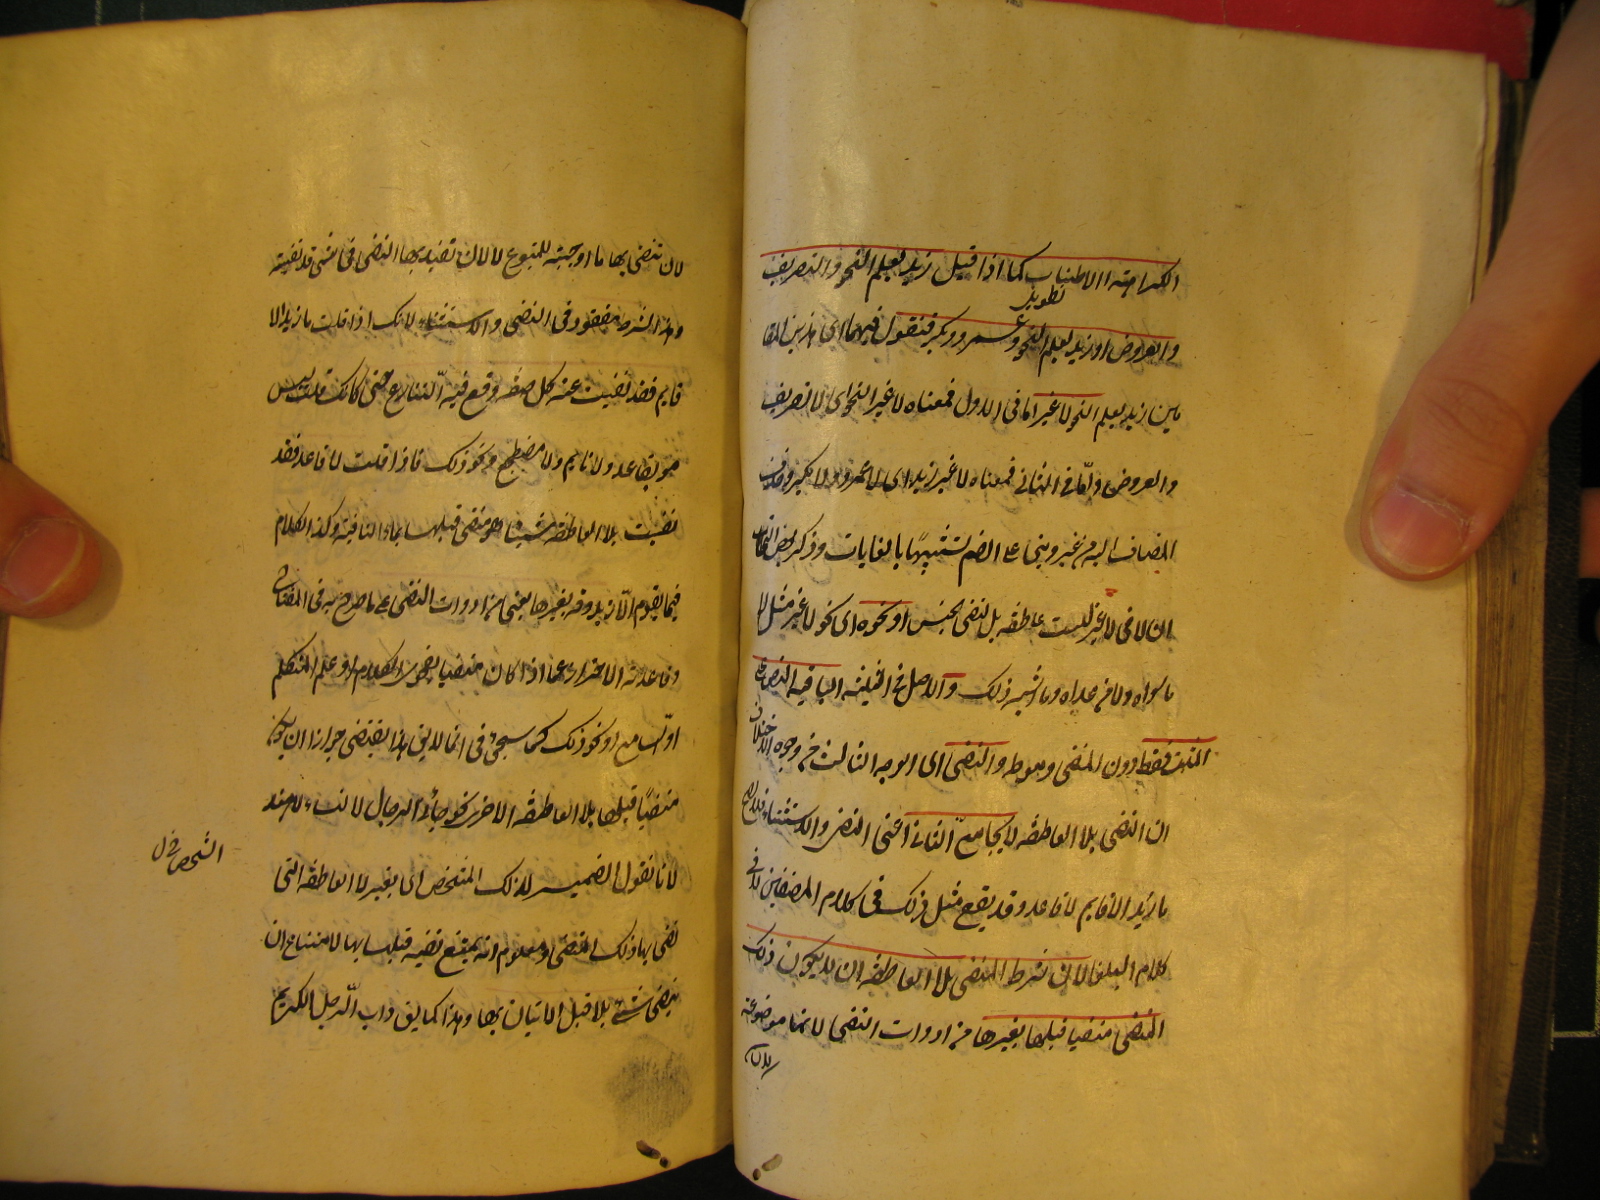 الكراهته الاطناب كما اذا قيل زيد يعلم النحو والتصريف
تطويل
والعروض او زيد يعلم النحو وعمرو وبكر فتقول فيهما اى هذين المقا
مين زيد يعلم النحو لا غير اما فى الاول فمعناه لا غير النحو اى لا تصريف
والعروض واما فى الثانى فمعناه لا غير زيد اى لا عمرو ولا بكر وحذف
المضاف اليه من غير وبنى على الضم تشبيها بالغايات وذكر بعض النحاة
ان لا فى لا غير ليست عاطفه بل لنفى الجنس او نحوه اى نحو لا غير مثل لا
ما سواه ولا من عداه وما اشبه ذلك والاصل فى الثلثه الباقيه النص على
المثبت فقط دون المنفى وهو ظ والنفى اى الوجه الثالث من وجوه الاختلاف
ان النفى بلا العاطفه لا يجامع الثانى اعنى النفى والاستثناء فلا يصح
ما زيد الا قايم لا قاعد وقد يقع مثل ذلك فى كلام المصنفين لا فى
كلام البلغا لان شرط المنفى بلا العاطفه ان لا يكون ذلك
المنفى منفيا قبلها بغيرها من ادوات النفى لانها موضوعة
لان
لان تنفى بها ما اوجبته للمتبوع لا لان تفيد بها النفى فى شئ قد نفيته
وهذا الشرط مفقود فى النفى والاستثناء لانك اذا قلت ما زيد الا
قايم فقد نفيت عنه كل صفه وقع فيه التنازع حتى كانك قلت ليس
هو بقاعد ولا نايم ولا مضطجع ونحو ذلك فاذا قلت لا قاعد فقد
نفيت بلا العاطفه شيئا هو منفى قبلها بما النافية وكذا الكلام
فيما يقوم الا زيد وقوله بغيرها يعنى من ادوات النفى على ما صرح به فى المفتاح
وفايدته الاحتراز عما اذا كان منفيا بفحوى الكلام او علم المتكلم
او السامع او نحو ذلك كما سيجئ فى انما لا يق هذا يقتضى جواز ان يكون
منفيا قبلها بلا العاطفه الاخرى نحو جاءنى الرجال لا النساء لا هند
لانا نقول الضمير لذلك المشخص اى بغير لا العاطفه التى
نفى بها ذلك المنفى ومعلوم انه يمتنع نفيه قبلها بها لامتناع ان
ينفى شئ بلا قبل الاتيان بها وهذا كما يق داب الرجل الكريم
الشخص خ ل